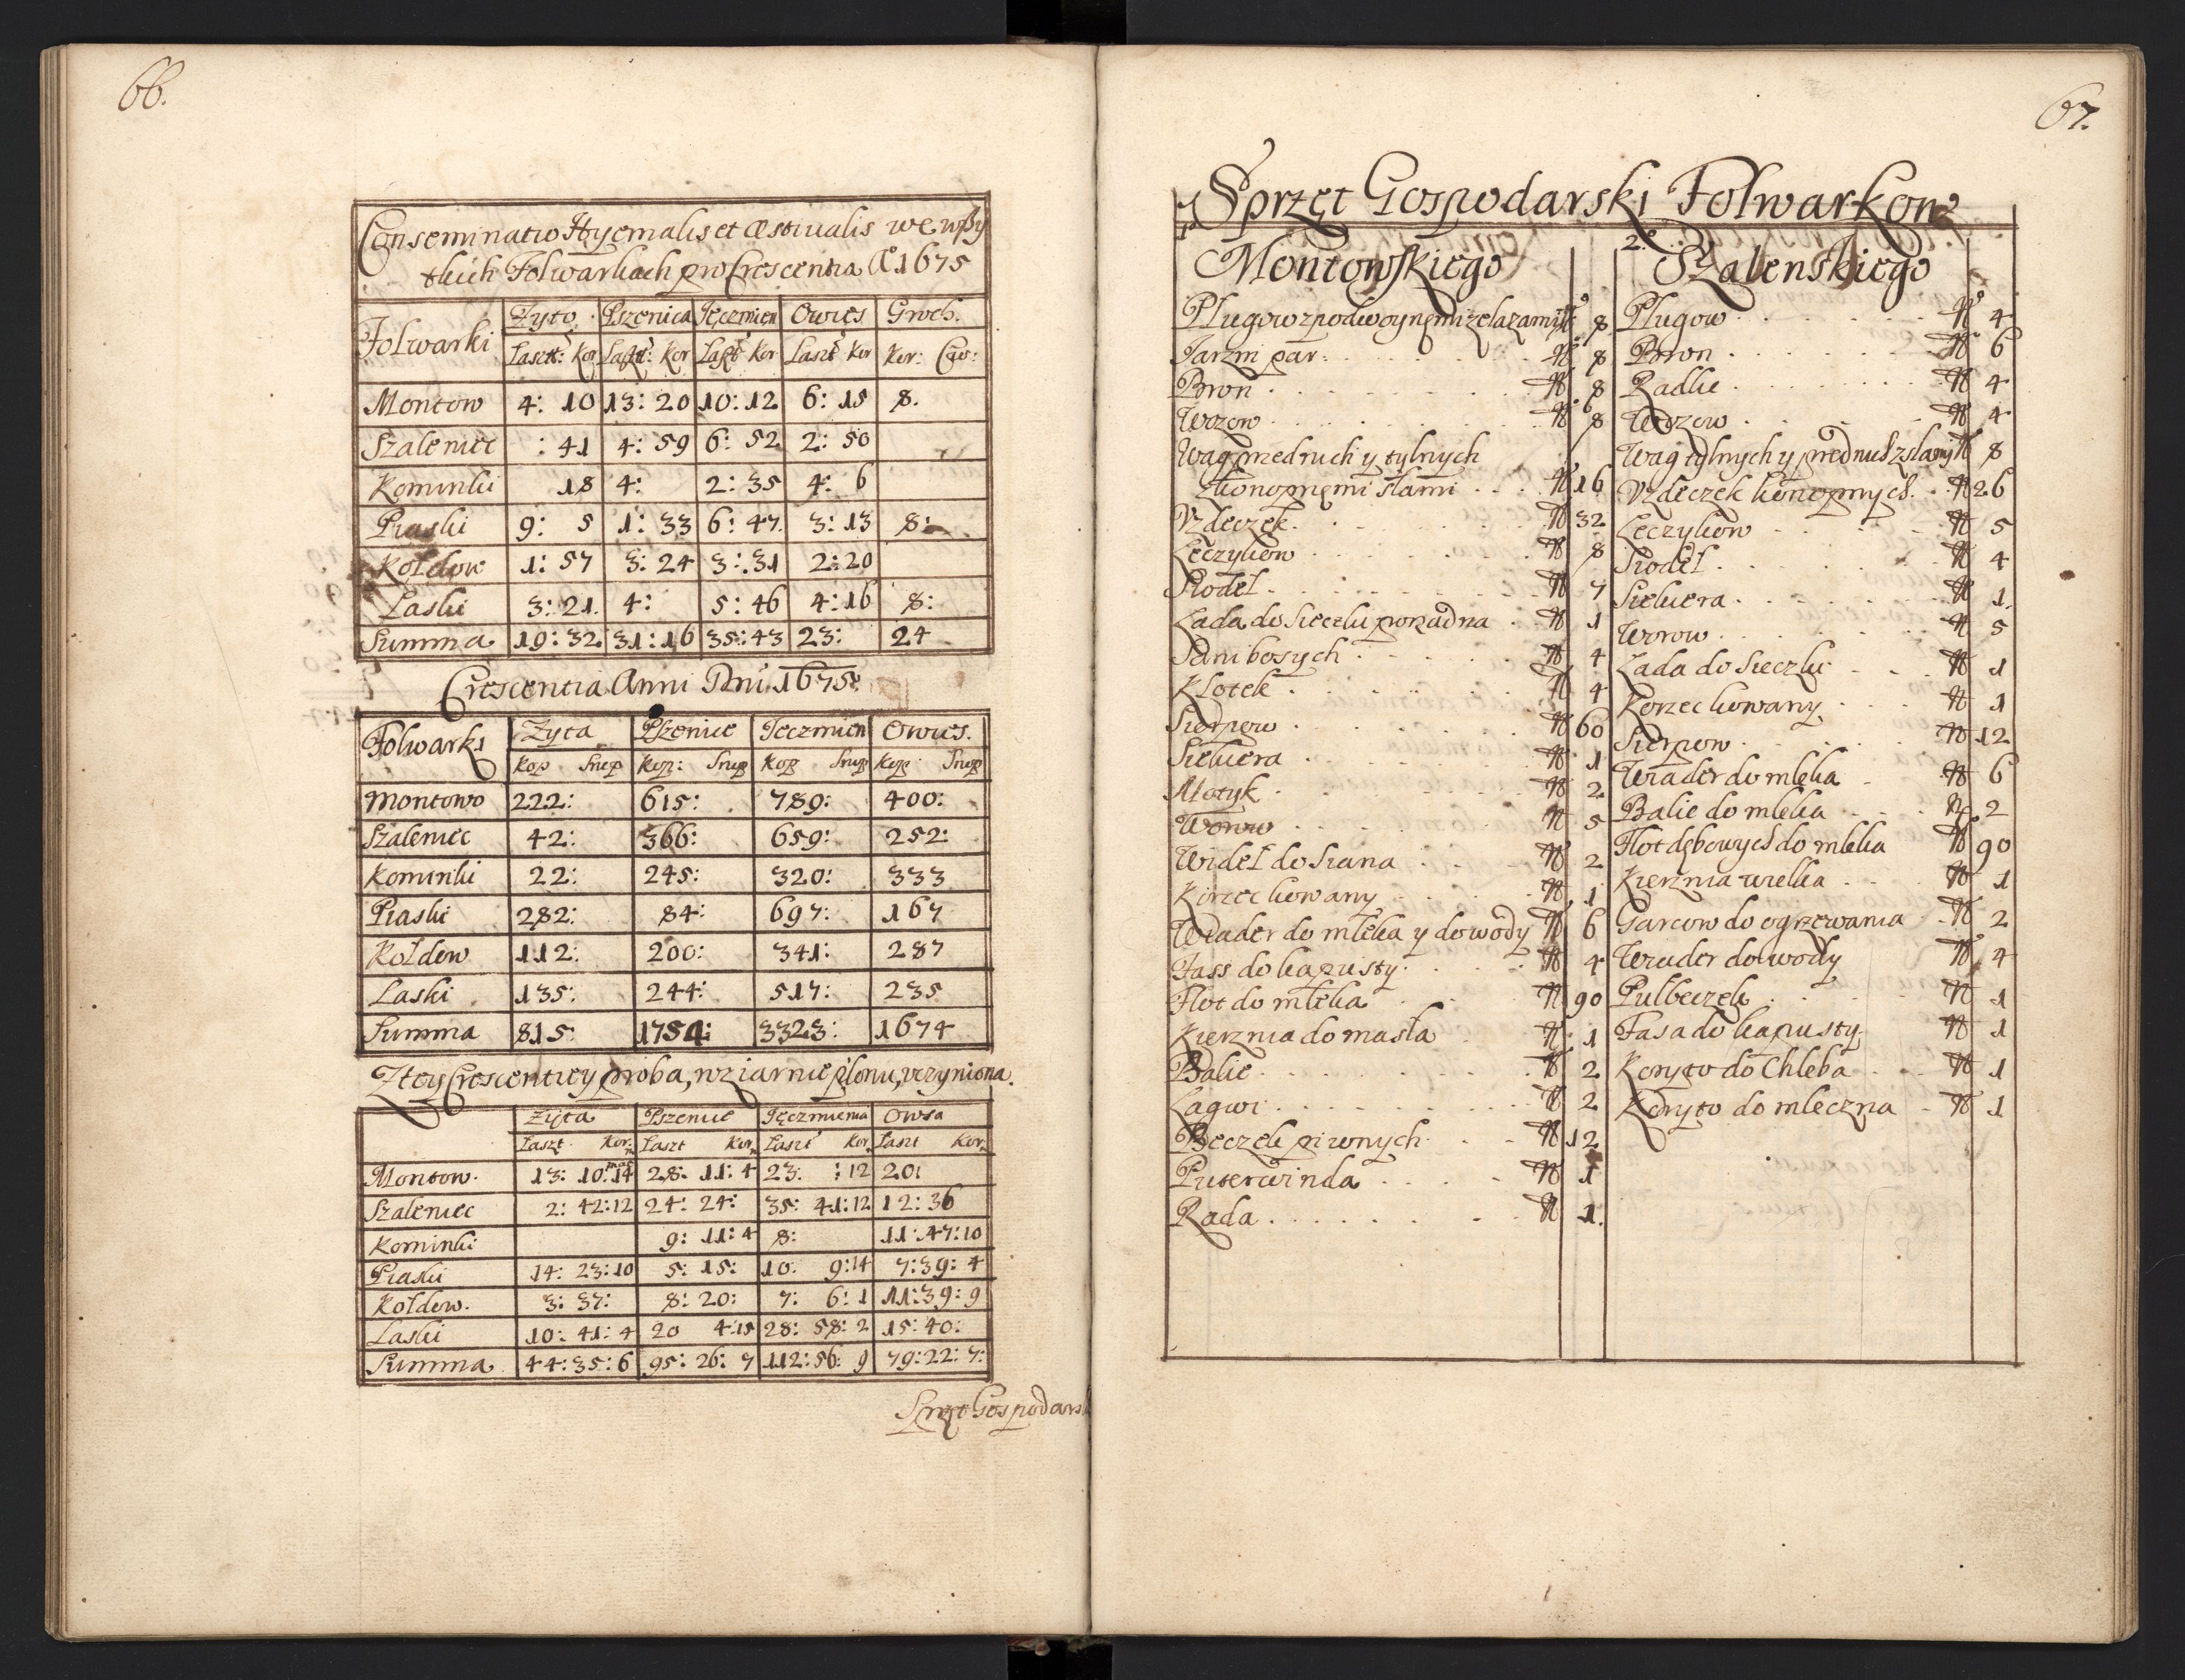 66.
Conseminatio Hyemalis et Æstiualis we wszy
stkich Folwarkach pro Crescentia Ao 1675
Folwarki Zyto Pszenica Jęczmien Owies Groch.
Laszt: Kor Laszt: Kor Laszt Kor Laszt Kor Kor: Cwi:
Montow 4: 10 13: 20 10: 12 6: 15 8.
Szaleniec : 41 4: 59 6: 52 2: 50
Kominki 18 4: 2: 35 4: 6
Piaski 9: 5 1: 33 6: 47. 3: 13 8:
Kołdow 1: 57 3: 24 3: 31 2: 20
Laski 3: 21. 4: 5: 46 4: 16 8:
Summa 19: 32 31: 16 35: 43 23: 24
Crescentia Anni Dni 1675.
Folwarki Zyta Pszenice Jęczmien Owies.
Kop Snop Kop: Snop Kop Snop Kop Snop
Montowo 222: 615: 789: 400:
Szaleniec 42: 366: 659: 252:
Kominki 22: 245: 320: 333
Piaski 282: 84: 697: 167
Kołdow 112: 200: 341: 287
Laski 135: 244: 517: 235
Summa 815: 1754: 3323: 1674
Z tey Crescentiey proba, w ziarnie plonu, vczyniona.
Zyta Pszenice Jęczmienia Owsa
Laszt Kor: Laszt Kor. Laszt Kor. Laszt Kor.
Montow. 13: 10: 14 28: 11: 4 23: : 12 20:
Szaleniec 2: 42: 12 24: 24: 35: 41: 12 12: 36
Kominki 9: 11: 4 8: 11: 47: 10
Piaski 14: 23: 10 5: 15: 10: 9: 14 7: 39: 4
Kołdow. 3: 37: 8: 20: 7: 6: 1 11: 39: 9
Laski 10: 41: 4 20 4: 15 28: 58: 2 15: 40:
Summa 44: 35: 6 95: 26: 7 112: 56: 9 79: 22: 7:
Sprzęt Gospodarsk
67.
Sprzęt Gospodarski Folwarkow
1o Montowskiego
Pługow z podwoynemi zelazami N 8
Jarzm par N 8
Bron N 8
Wozow N 8
Wag przednich y tylnych
z konopnemi słami N 16
Vzdeczek N 32
Leczykow N 8
Siodeł N 7
Łada do Sieczki porządna N 1
Sani bosych N 4
Klotek N 4
Sierpow N 60
Siekiera N 1
Motyk N 2
Worow N 5
Wideł do Siana N 2
Korzec kowany N 1
Wiader do mleka y do wody N 6
Fass do kapusty N 4
Flot do mleka N 90
Kierznia do masła N 1
Balie N 2
Łagwi N 2
Beczek piwnych N 12
Puterwinda N 1
Rada N 1.
2o Szalenskiego
Pługow N 4
Bron N 6
Radlic N 4
Wozow N 4
Wag tylnych y przednich z słamy N 8
Vzdeczek konopnych N 26
Leczykow N 5
Siodeł N 4
Siekiera N 1.
Worow N 5
Łada do Sieczki N 1
Korzec kowany N 1
Sierpow N 12
Wiader do mleka N 6
Balie do mleka N 2
Flot dębowych do mleka N 90
Kierznia wielka N 1
Garcow do ogrzewania N 2
Wiader do wody N 4
Pulbeczek N 1
Fasa do kapusty N 1
Koryto do Chleba N 1
Koryto do mleczna N 1